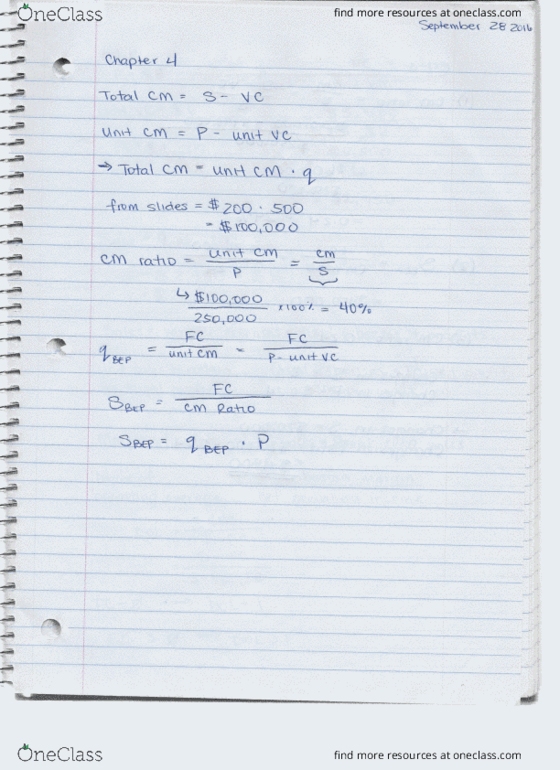 OneClass
find more resources at oneclass.com
September 28 2016
Chapter 4
Total CM = S - VC
Unit CM = P - unit VC
→ Total CM = unit CM · q
from slides = $200 · 500
= $100,000
CM ratio = unit CM / P = CM / S
↳ $100,000 / 250,000 × 100% = 40%
q BEP = FC / unit CM = FC / P - unit VC
S BEP = FC / CM Ratio
S BEP = q BEP · P
OneClass
find more resources at oneclass.com